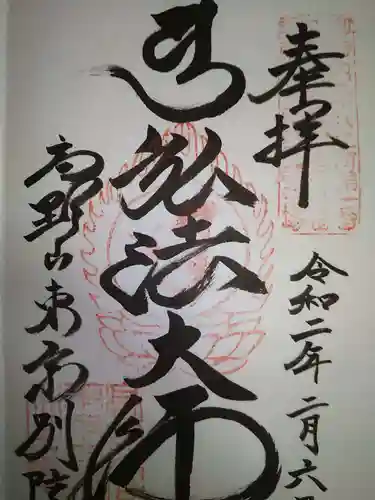 奉拝
令和二年二月六日
弘法大師
高野山東京別院